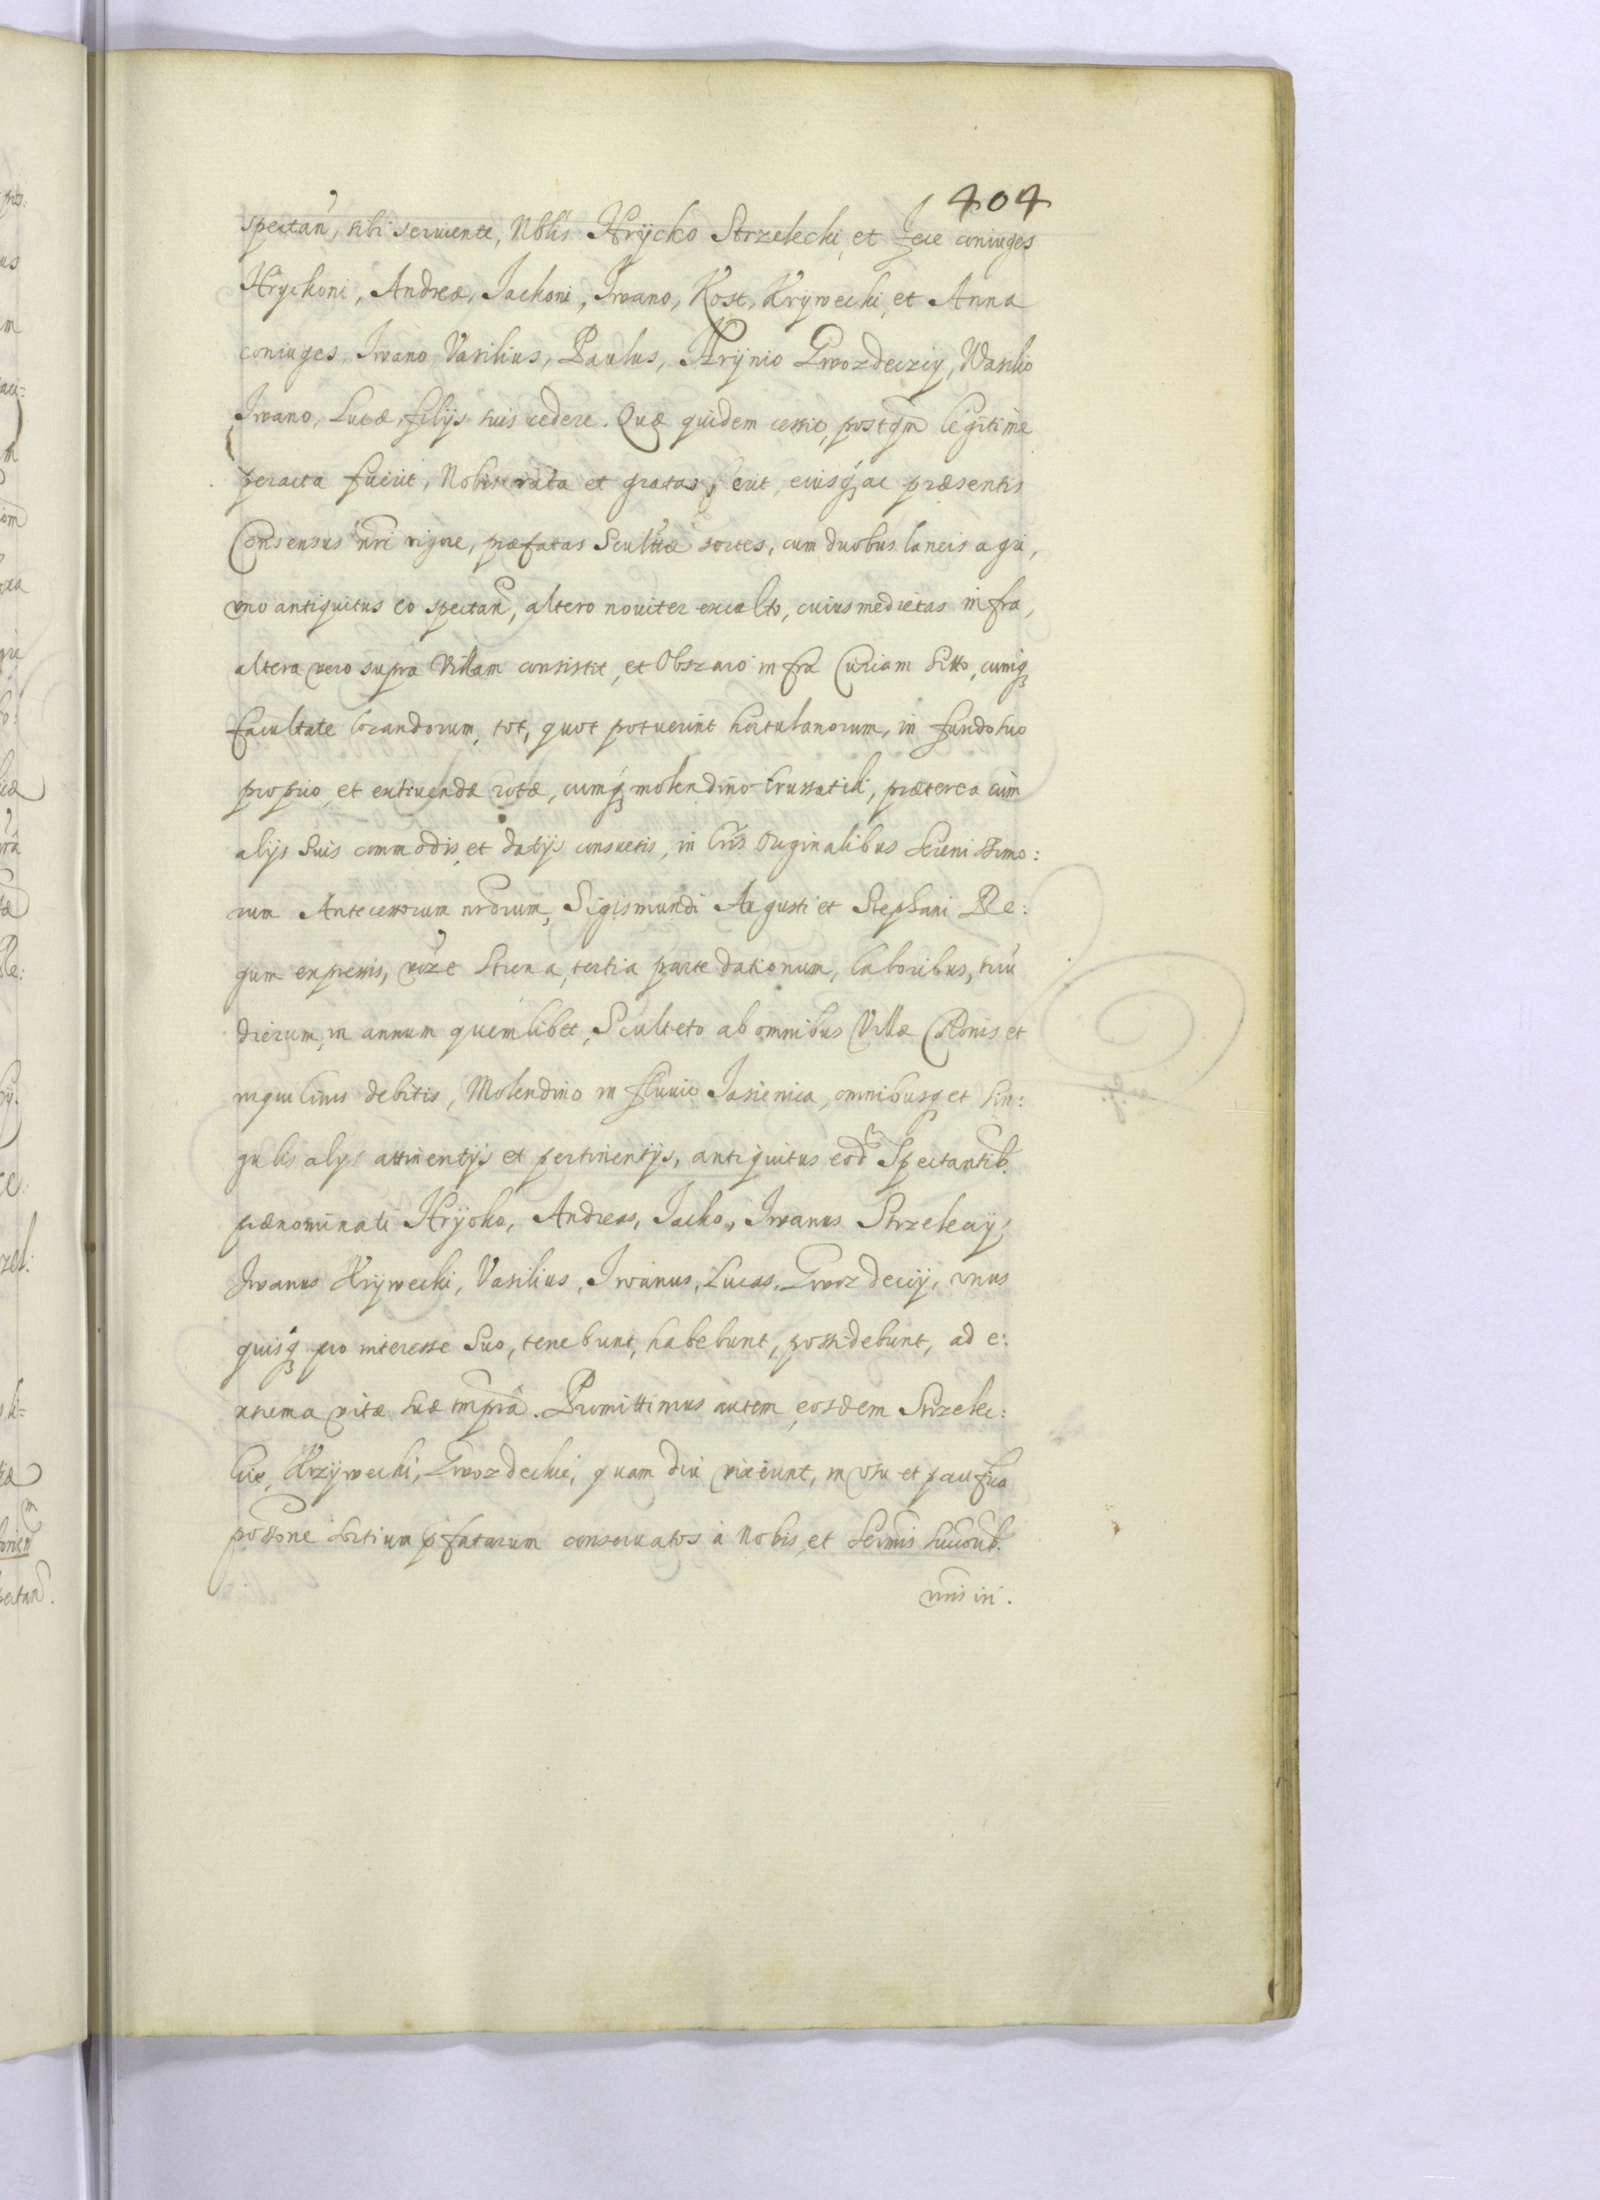 404
spectań, sibi seruiente, Nobłis Hrycko Strzelecki, et coniuges
Hryckoni, Andreæ, Jackoni, Jwano, Kost, Krywecki, et Anna
coniuges, Jwano Vasilius, Paulus, Hrynio Gwozdeczij, Wasilio
Jwano, Lucæ, filijs suis cedere. Quæ quidem cessio, postqm legitime
peracta fuerit, Nobis rata et grata erit, eiusq ac præsentis
Consensus nri vigore, præfatas Scultiæ sortes, cum duobus laneis agri,
vno antiquitus eo spectań, altero nouiter exculto, cuius medietas infra,
altera vero supra Villam consistit, et Obszaro infra Curiam sitto, cumq
facultate locandorum, tot, quot potuerint hortulanorum, in fundo suo
proprio, et extruendæ rotæ, cumq molendino trussatili, præterea cum
alijs suis commodis, et datijs consuetis, in lris Originalibus Sereni ssimo:
rum Antecessorum nrorum, Sigismundi Augusti et Stephani Re:
gum expressis, Strena, tertia parte dationum, laboribus, triu
dierum, in annum quemlibet, Sculteto ab omnibus Villæ Colonis et
inquilinis debitis, Molendino in fluuio Jasienica, omnibusq et sin:
gulis alijs attinentijs et pertinentijs, antiquitus eod Spectantib.
prænominati Hrycko, Andreas, Jacko, Jwanus Strzelecij,
Jwanus Krywecki, Vasilius, Jwanus, Lucas, Gwozdecij, vnus
quisq pro interesse suo, tenebunt, habebunt, possidebunt, ad e:
xtrema vitæ suæ tmpra. Promittimus autem, eosdem Strzele:
Krzywecki, Gwozdeckie, quam diu vixerint, in vsu et pacifica
possone sortium pfatarum conseruatos à Nobis, et Sermis succorib.
nris iri.